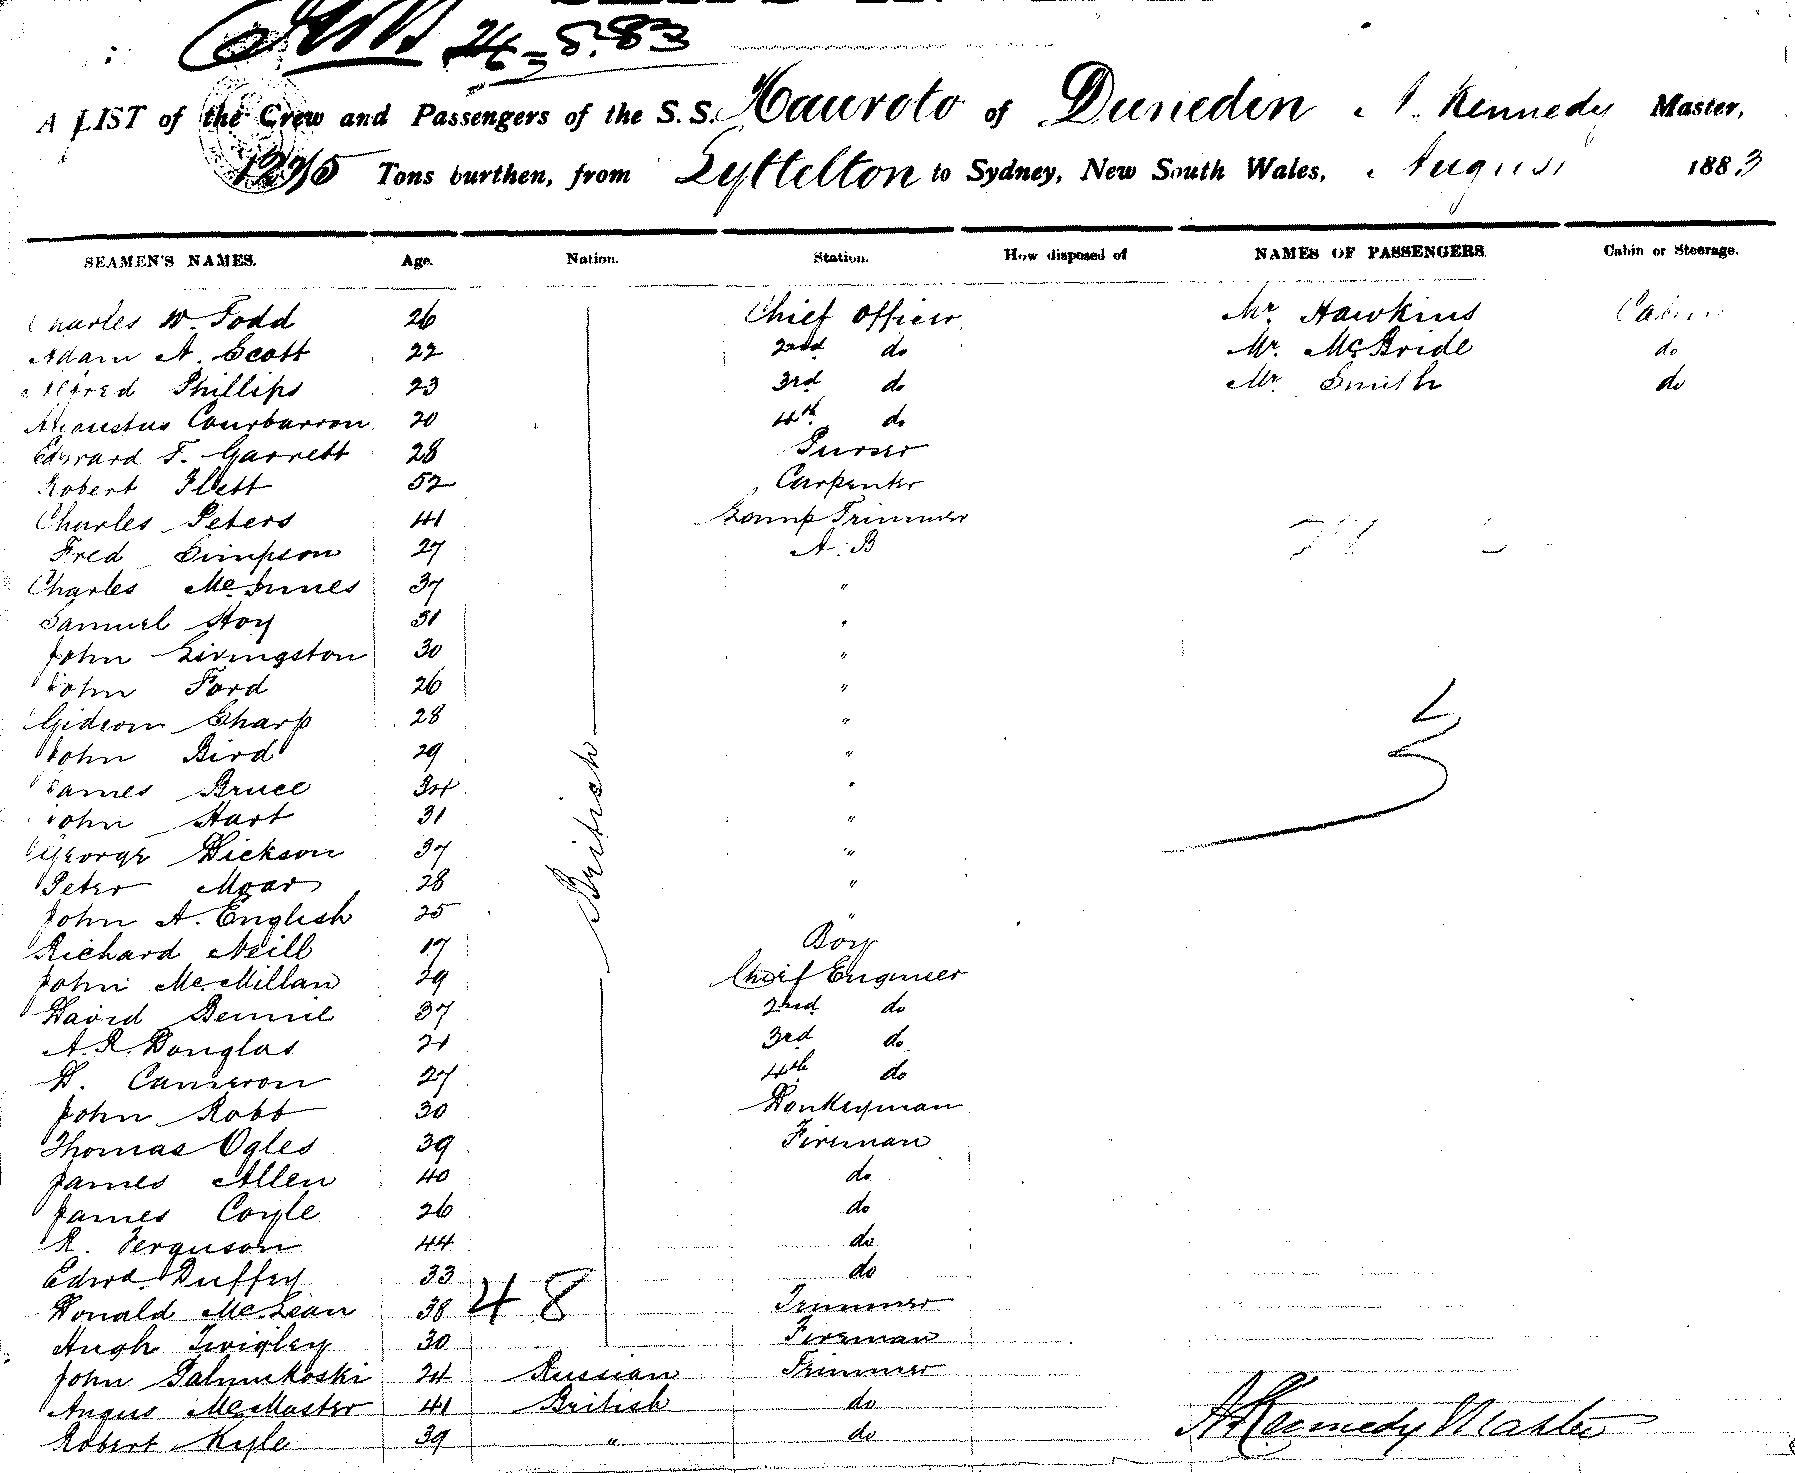 24-8.83
A LIST of the Crew and Passengers of the S.S. Hauroto of Dunedin A. Kennedy Master,
1276 Tons burthen, from Lyttelton to Sydney, New South Wales, August 1883
SEAMEN'S NAMES. Age. Nation. Station. How disposed of NAMES OF PASSENGERS. Cabin or Steerage.
Charles W. Todd 26 Chief Officer Mr. Hawkins Cabin
Adam A. Scott 22 2nd do Mr. McBride do
Alfred Phillips 23 3rd do Mr Smith do
Augustus Courbarron 20 4th do
Edward F. Garrett 28 Purser
Robert Flett 52 Carpenter
Charles Peters 41 Lamp Trimmer
Fred Simpson 27 A.B
Charles McInnes 37 "
Samuel Hoy 31 "
John Livingston 30 "
John Ford 26 "
Gideon Sharp 28 "
John Bird 29 "
James Bruce 34 "
John Hart 31 "
George Dickson 37 "
Peter Moar 28 "
British
John A. English 25 "
Richard Neill 17 Boy
John McMillan 29 Chief Engineer
David Bennie 37 2nd do
A. R. Douglas 21 3rd do
D. Cameron 27 4th do
John Robb 30 Donkeyman
Thomas Ogles 39 Fireman
James Allen 40 do
James Coyle 26 do
R. Ferguson 44 do
Edwd. Duffey 33 do
Donald McLean 38 48 Trimmer
Hugh Twigley 30 Fireman
John 24 Russian Trimmer
Angus McMaster 41 British do
Robert Kyle 39 " do
A. Kennedy Master
3